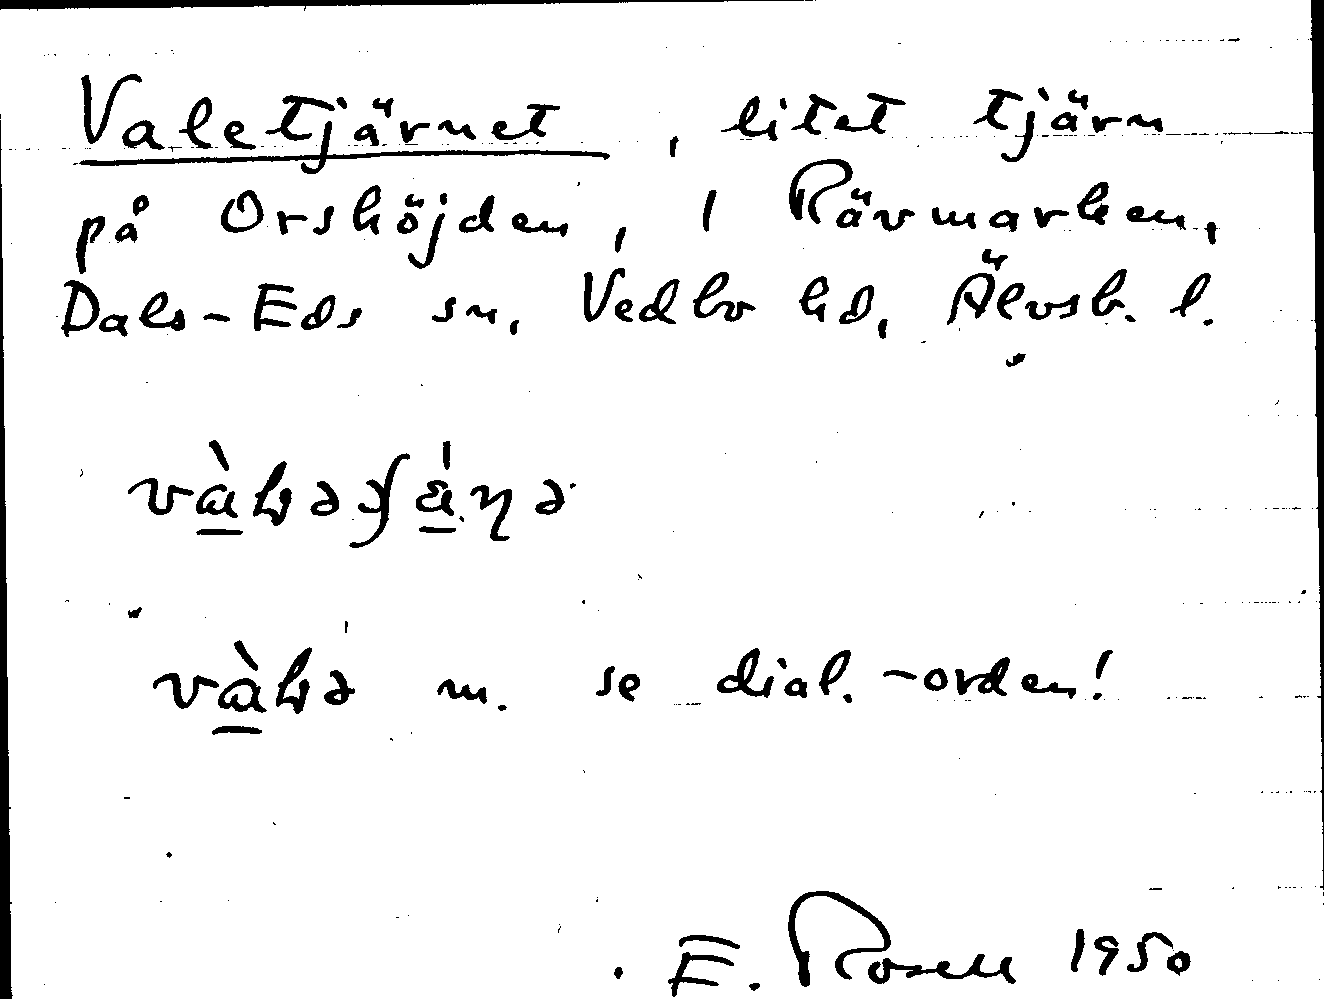 Valetjärnet, litet tjärn
på Orshöjden, i Rävmarken,
Dals-Eds sn, Vedbo hd, Älvsb. l.
m. se dial.-orden!
E. Rosell 1950